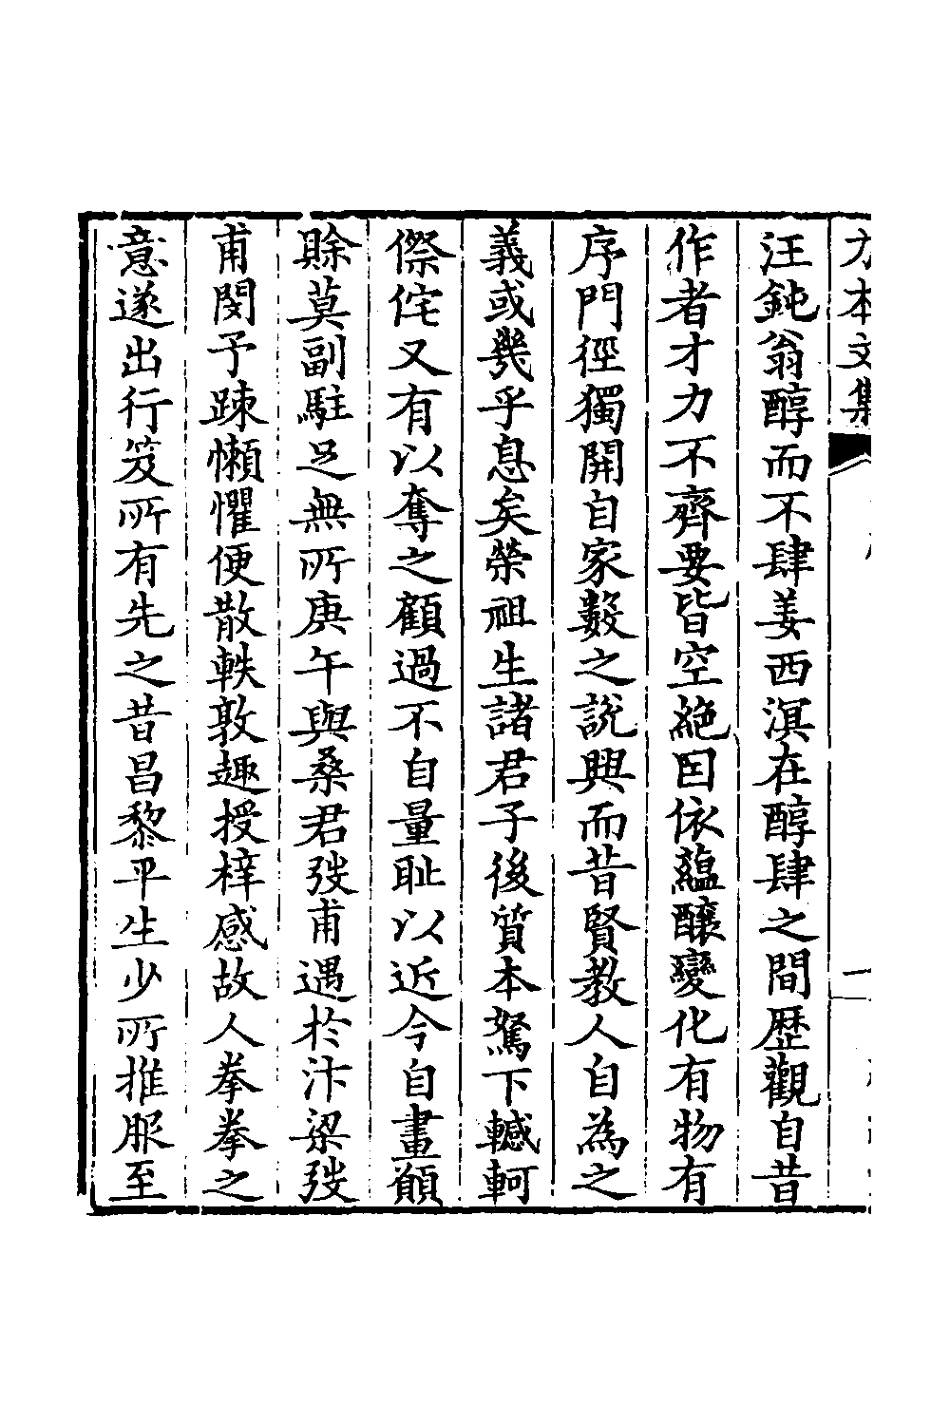 本文集
汪鈍翁醇而不肆姜西溟在醇肆之間歷觀自昔
作者才力不齊要皆空絶因依蘊釀變化有物有
序門徑獨開自家數之說興而昔賢教人自為之
義或幾乎息矣榮祖生諸君子後質本駑下轗軻
傺侘又有以奪之顧過不自量恥以近今自畫顧
賒莫副駐足無所庚午與桑君弢甫遇於汴梁弢
甫閔予疎懶懼便散軼敦趣授梓感故人拳拳之
意遂出行笈所有先之昔昌黎平生少所推服至